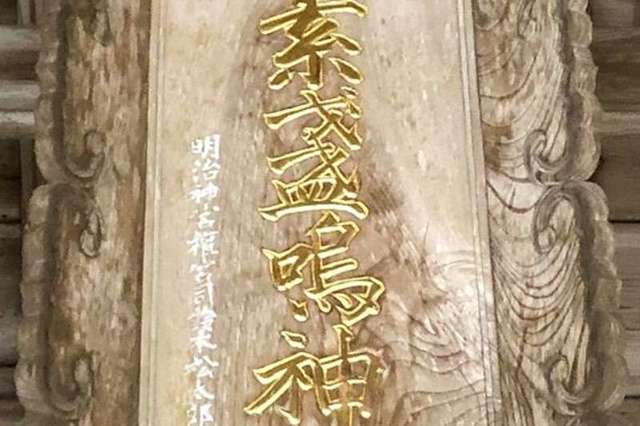 素戔盞嗚神
明治神宮権宮司
松太郎